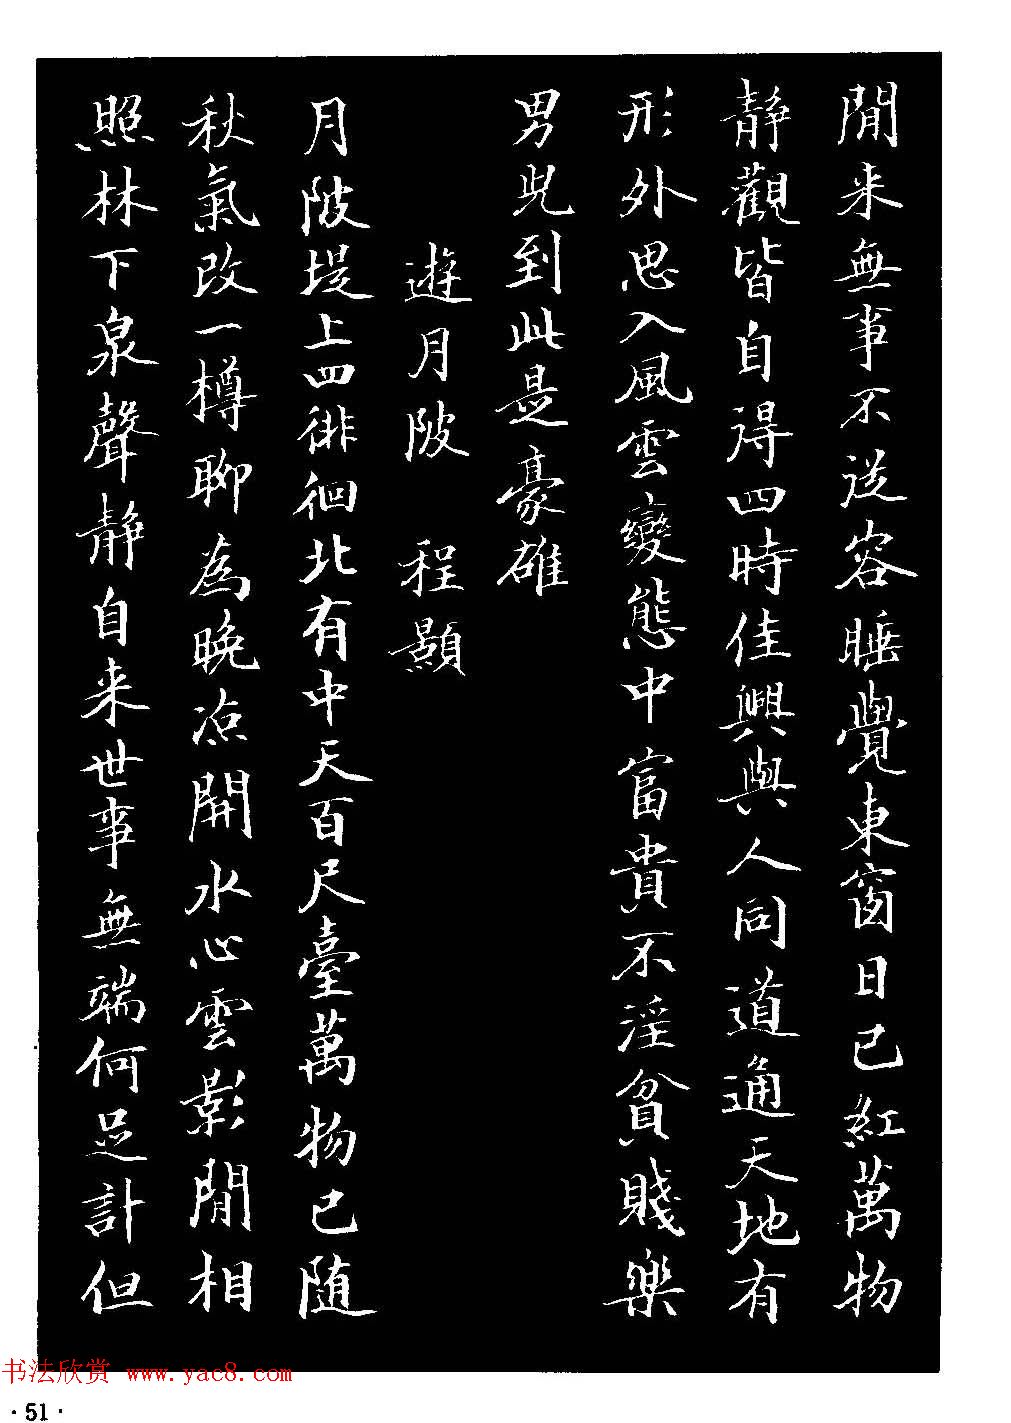 閒来無事不送容睡覺東窗日已紅萬物
静觀皆自得四時佳興與人同道通天地有
形外思入風雲變態中富貴不淫貧賤樂
男兒到此是豪雄
遊月陂 程顥
月陂堤上四徘徊北有中天百尺臺萬物已随
秋氣改一樽聊為晚凉開水心雲影閒相
照林下泉聲静自来世事無端何足計但
书法欣赏 www.yac8.com
·51·